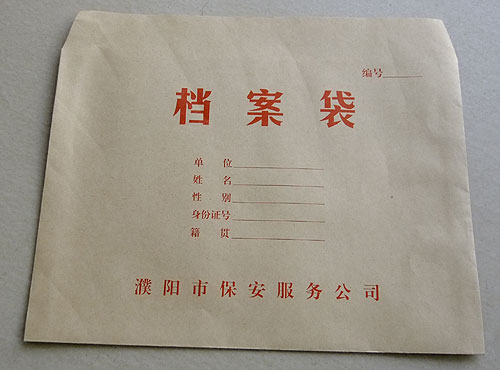 编号
档案袋
单 位
姓 名
性 别
身份证号
籍 贯
濮阳市保安服务公司